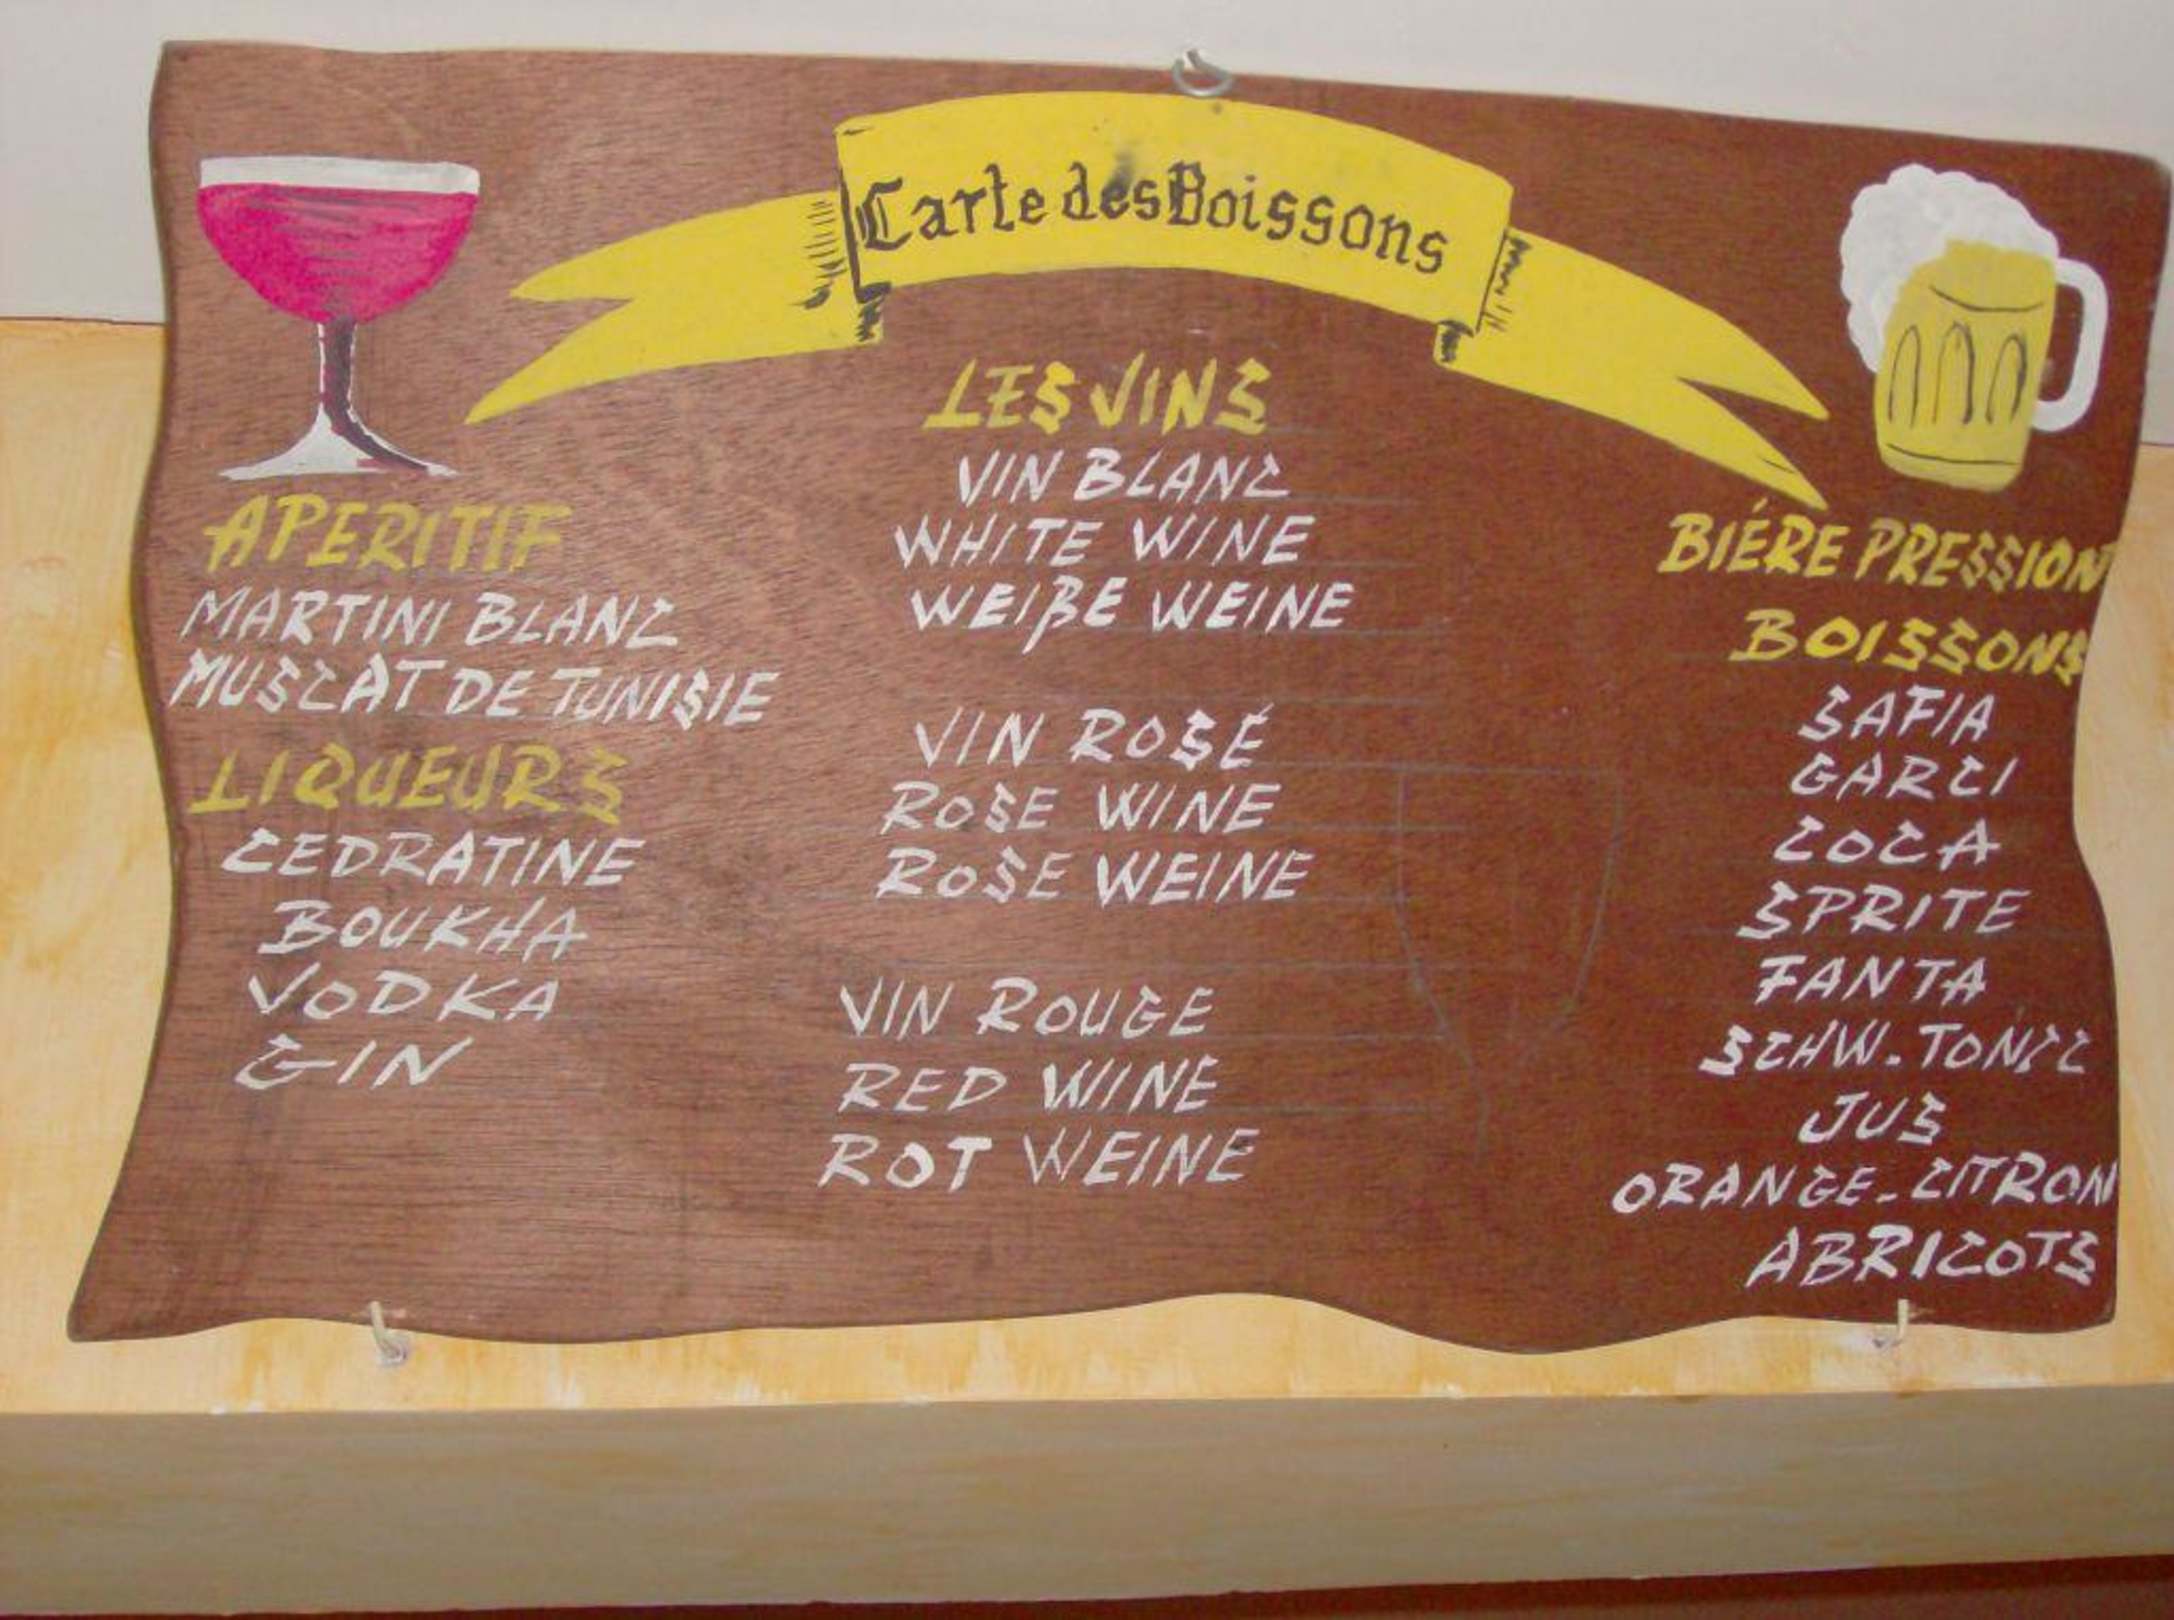 Carte des Boissons
APERITIF
MARTINI BLANC
MUSCAT DE TUNISIE
LIQUEURS
CEDRATINE
BOUKHA
VODKA
GIN
LES VINS
VIN BLANC
WHITE WINE
WEIßE WEINE
VIN ROSÉ
ROSE WINE
ROSE WEINE
VIN ROUGE
RED WINE
ROT WEINE
BIÉRE PRESSION
BOISSONS
SAFIA
GARCI
COCA
SPRITE
FANTA
SCHW. TONIC
JUS
ORANGE - CITRON
ABRICOTS